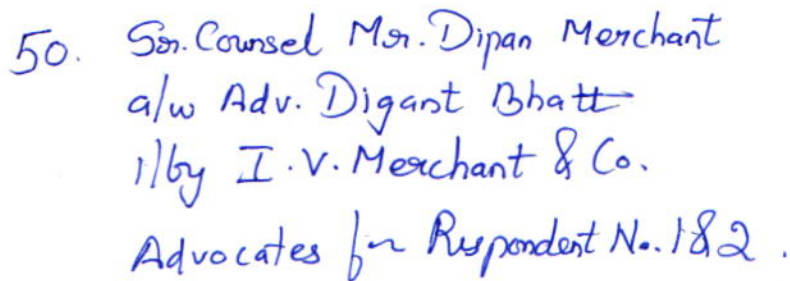 50. Sr. Counsel Mr. Dipan Merchant
a/w Adv. Digant Bhatt
i/by I.V. Merchant & Co.
Advocates for Respondent No. 1&2.